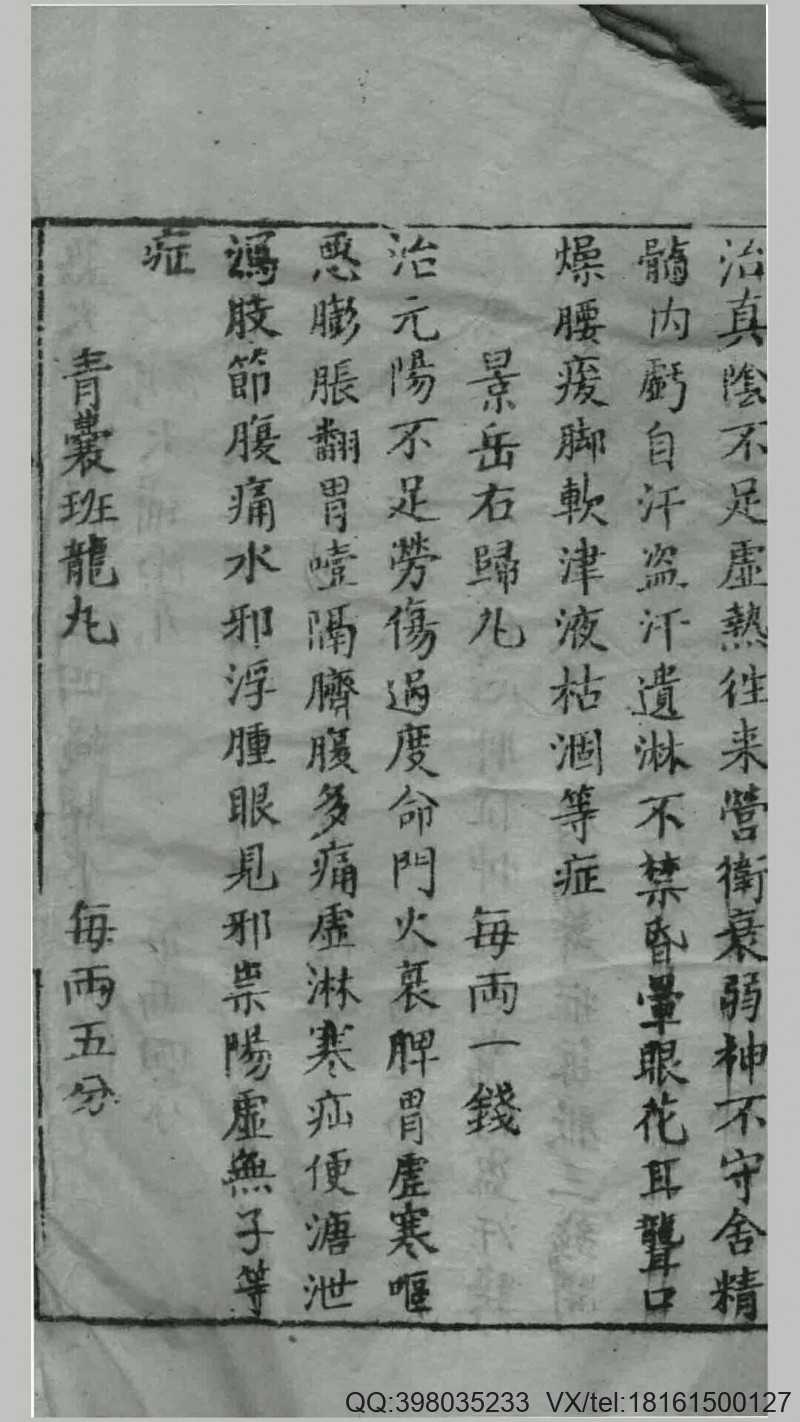 治真陰不足虛熱往来營衛衰弱神不守舍精
髓内虧自汗盗汗遺淋不禁昏暈眼花耳聾口
燥腰痠脚軟津液枯涸等症
景岳右歸丸 每両一錢
治元陽不足勞傷過度命門火衰脾胃虛寒嘔
惡膨脹翻胃噎隔臍腹多痛虛淋寒疝便溏泄
瀉肢節腹痛水邪浮腫眼見邪祟陽虛無子等
症
青囊班龍丸 每両五分
QQ:398035233 VX/tel:18161500127